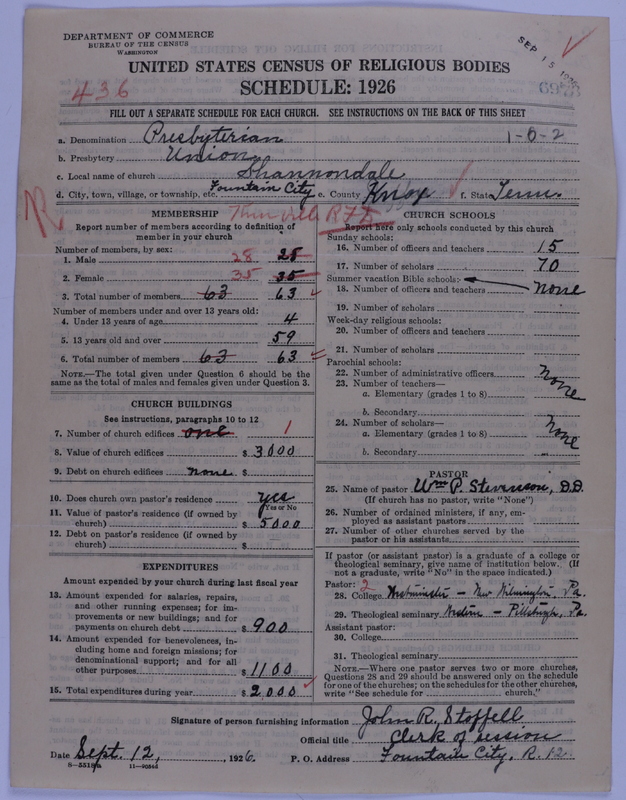 DEPARTMENT OF COMMERCE
BUREAU OF THE CENSUS
WASHINGTON
SEP 15 1926
UNITED STATES CENSUS OF RELIGIOUS BODIES
SCHEDULE: 1926
436
FILL OUT A SEPARATE SCHEDULE FOR EACH CHURCH. SEE INSTRUCTIONS ON THE BACK OF THIS SHEET
a. Denomination Presbyterian 1-0-2
b. Presbytery Union
c. Local name of church Shannondale
d. City, town, village, or township, etc. Fountain City e. County Knox f. State Tenn.
R
MEMBERSHIP
Report number of members according to definition of
member in your church
Number of members, by sex:
1. Male 28 28
2. Female 35 35
3. Total number of members 63 63
Number of members under and over 13 years old:
4. Under 13 years of age 4
5. 13 years old and over 59
6. Total number of members 63 63
NOTE.—The total given under Question 6 should be the
same as the total of males and females given under Question 3.
CHURCH BUILDINGS
See instructions, paragraphs 10 to 12
7. Number of church edifices one 1
8. Value of church edifices $ 3000
9. Debt on church edifices none $
10. Does church own pastor's residence yes
Yes or No
11. Value of pastor's residence (if owned by
church) $ 5000
12. Debt on pastor's residence (if owned by
church) $
EXPENDITURES
Amount expended by your church during last fiscal year
13. Amount expended for salaries, repairs,
and other running expenses; for im-
provements or new buildings; and for
payments on church debt $ 900
14. Amount expended for benevolences, in-
cluding home and foreign missions; for
denominational support; and for all
other purposes. $ 1100
15. Total expenditures during year $ 2,000
CHURCH SCHOOLS
Report here only schools conducted by this church
Sunday schools:
16. Number of officers and teachers 15
17. Number of scholars 70
Summer vacation Bible schools:
18. Number of officers and teachers none
19. Number of scholars
Week-day religious schools:
20. Number of officers and teachers
21. Number of scholars
Parochial schools:
22. Number of administrative officers none
23. Number of teachers—
a. Elementary (grades 1 to 8)
b. Secondary
24. Number of scholars— none
a. Elementary (grades 1 to 8)
b. Secondary
PASTOR
25. Name of pastor Wm P. Stevenson, D.D.
(If church has no pastor, write "None")
26. Number of ordained ministers, if any, em-
ployed as assistant pastors
27. Number of other churches served by the
pastor or his assistants
If pastor (or assistant pastor) is a graduate of a college or
theological seminary, give name of institution below. (If
not a graduate, write "No" in the space indicated.)
Pastor: 2
28. College Westminster – New Wilmington, Pa.
29. Theological seminary Western – Pittsburgh, Pa.
Assistant pastor:
30. College
31. Theological seminary
NOTE.—Where one pastor serves two or more churches,
Questions 28 and 29 should be answered only on the schedule
for one of the churches; on the schedules for the other churches,
write "See schedule for church."
Signature of person furnishing information John R. Stoffell
Official title Clerk of session
Date Sept. 12, 1926. P. O. Address Fountain City, R. 12
11—9054d